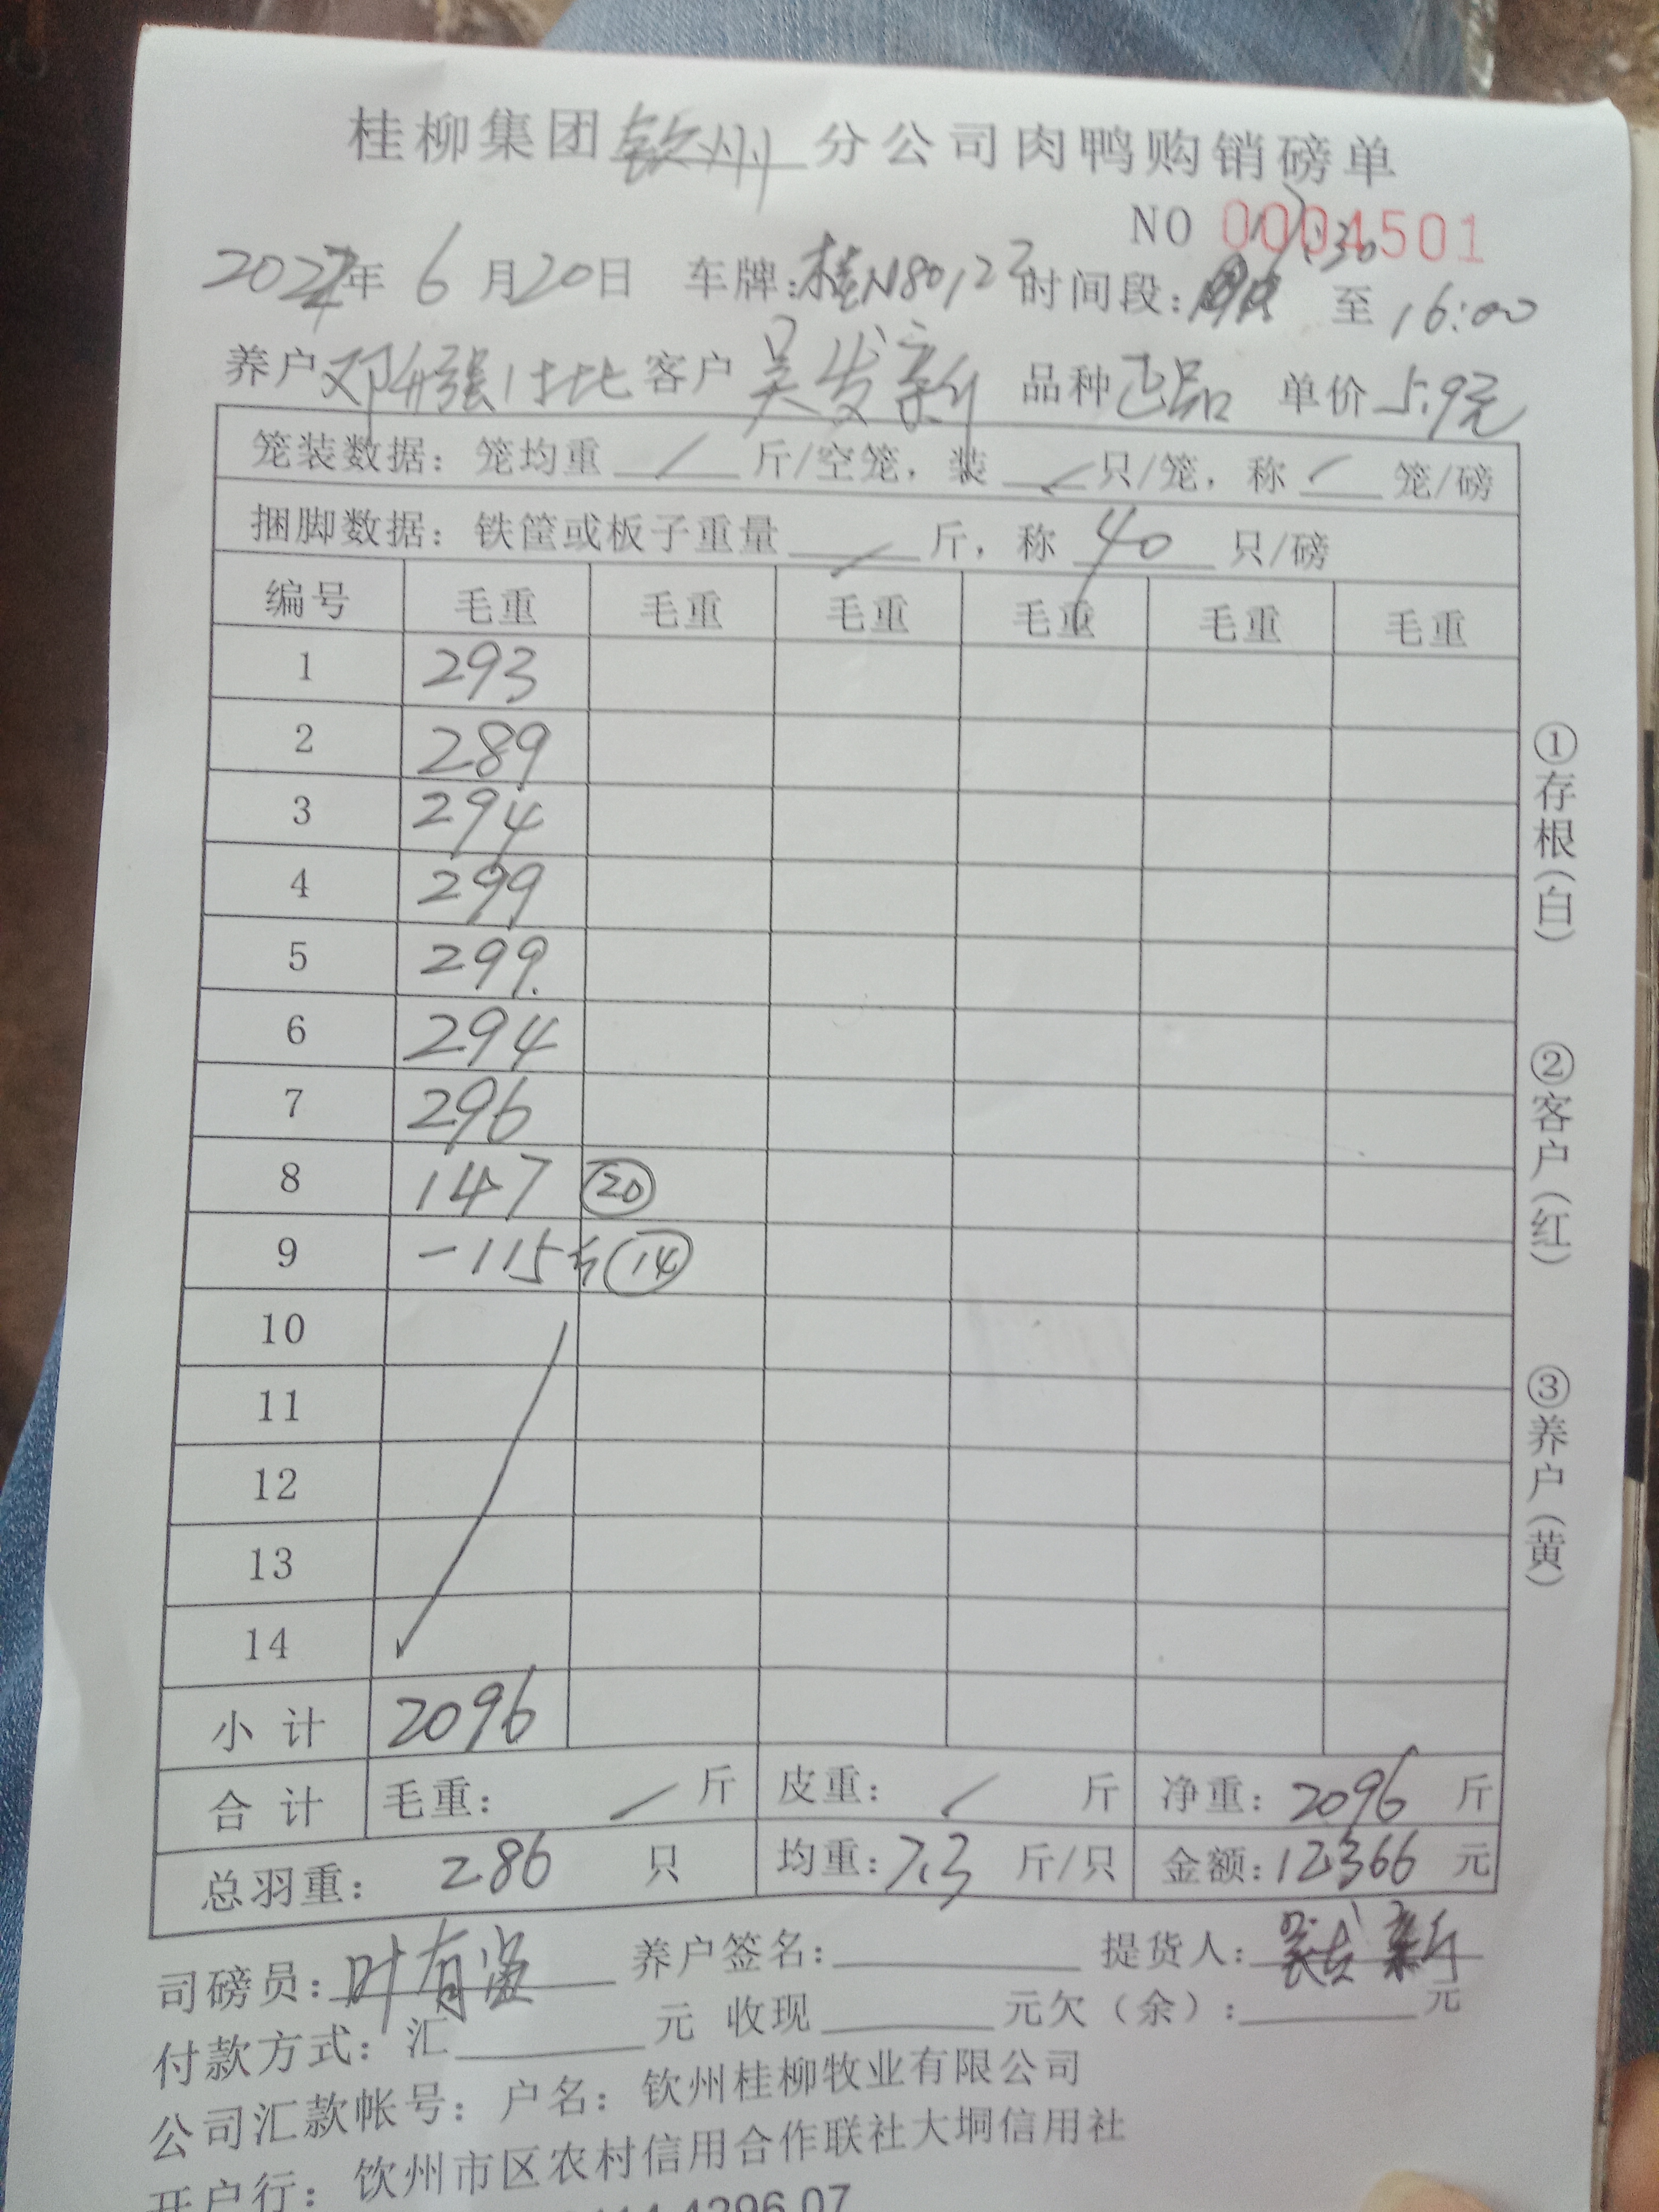 桂柳集团钦州分公司肉鸭购销磅单
NO 0004501
年 6月20日 车牌:桂N80127 时间段: :30 至 16:00
养户 邓 强 客户 吴发新 品种 正品 单价 5.9元
笼装数据: 笼均重 / 斤/空笼, 装 / 只/笼, 称 / 笼/磅
捆脚数据: 铁筐或板子重量 / 斤, 称 40 只/磅
编号 毛重 毛重 毛重 毛重 毛重 毛重
1 293
2 289
3 294
4 299
5 299.
6 294
7 296
8 147 ⑳
9 -115斤 ⑭
10
11
12
13
14
小 计 2096
合 计 毛重: / 斤 皮重: / 斤 净重: 2096 斤
总羽重: 286 只 均重: 7.3 斤/只 金额: 12366 元
司磅员: 叶有 养户签名: 提货人: 吴发新
付款方式: 汇 元 收现 元欠(余): 元
公司汇款帐号: 户名: 钦州桂柳牧业有限公司
开户行: 钦州市区农村信用合作联社大垌信用社
4296 07
①存根(白)
②客户(红)
③养户(黄)